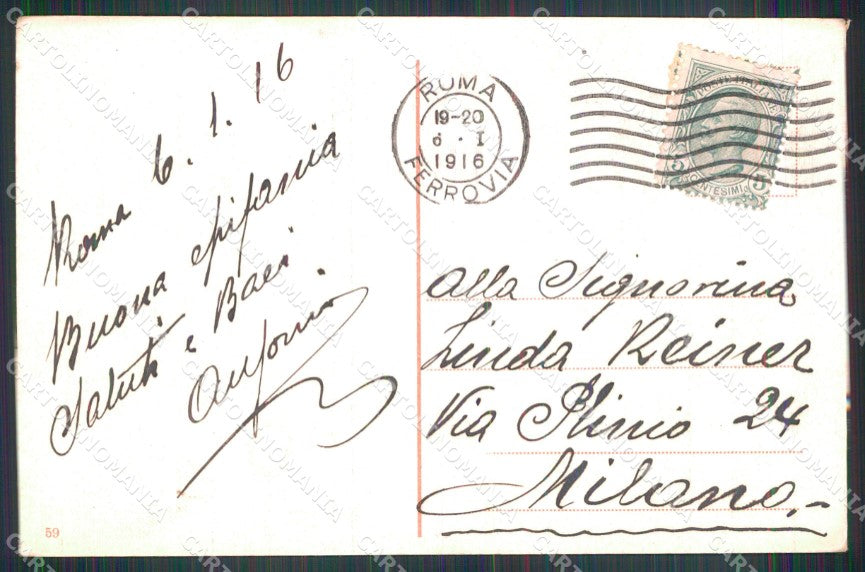 Roma 6.1.16
Buona epifania
Saluti e Baci
Antonio
ROMA
19-20
6 · I
1916
FERROVIA
POSTE ITALIANE
5 CENTESIMI 5
Alla Signorina
Linda Reiner
Via Plinio 24
Milano.-
59
CARTOLINOMANIA